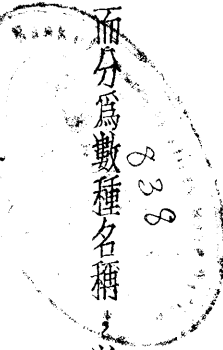 而分爲數種名稱，
838